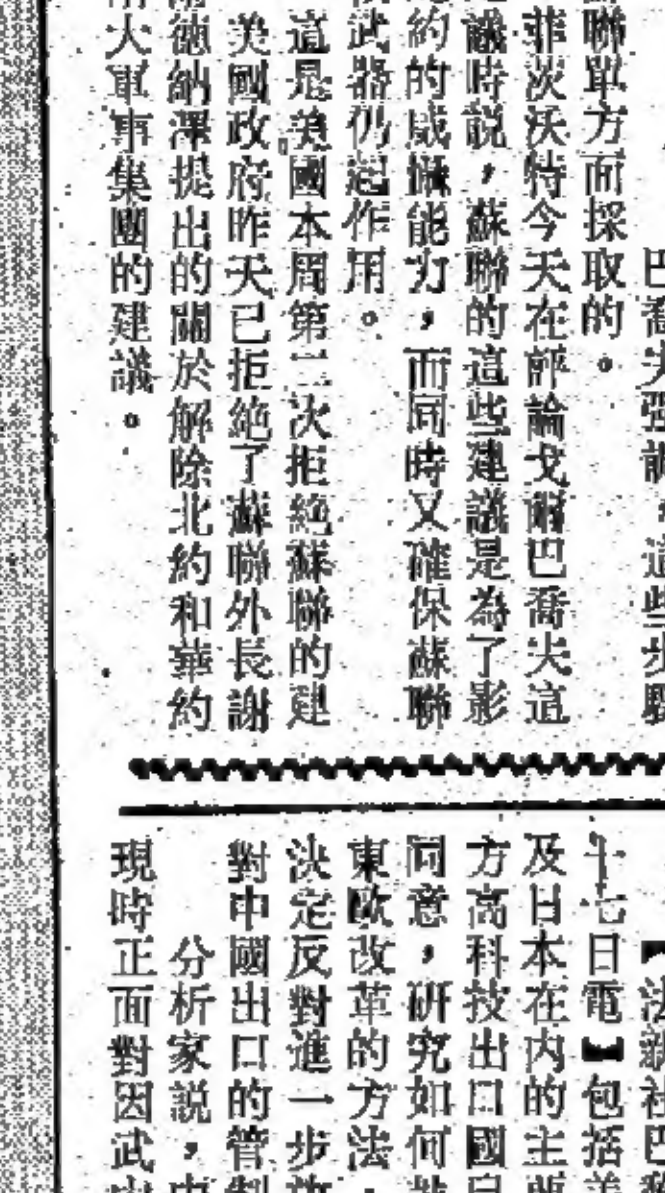 巴喬夫強調，這些步驟
聯單方面採取的。
菲茨沃特今天在評論戈爾巴喬夫這
議時說，蘇聯的這些建議是為了影
約的威懾能力，而同時又確保蘇聯
武器仍起作用。
這是美國本周第二次拒絕蘇聯的建
美國政府昨天已拒絕了蘇聯外長謝
德納澤提出的關於解除北約和華約
大軍事集團的建議。
【法新社巴黎
十七日電】包括美
及日本在內的主要
方高科技出口國已
同意，研究如何
東歐改革的方法，
決定反對進一步放
對中國出口的管制
分析家說，中
現時正面對因武